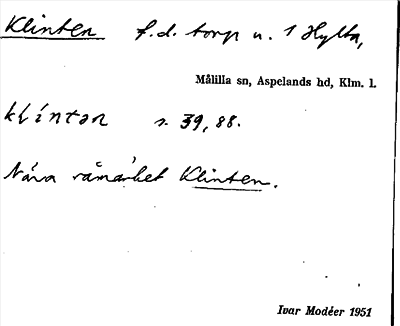 Klinten f.d. torp u. 1 Hylta,
Målilla sn, Aspelands hd, Klm. l.
klíntən s. 39, 88.
Nära råmärket Klinten.
Ivar Modéer 1951